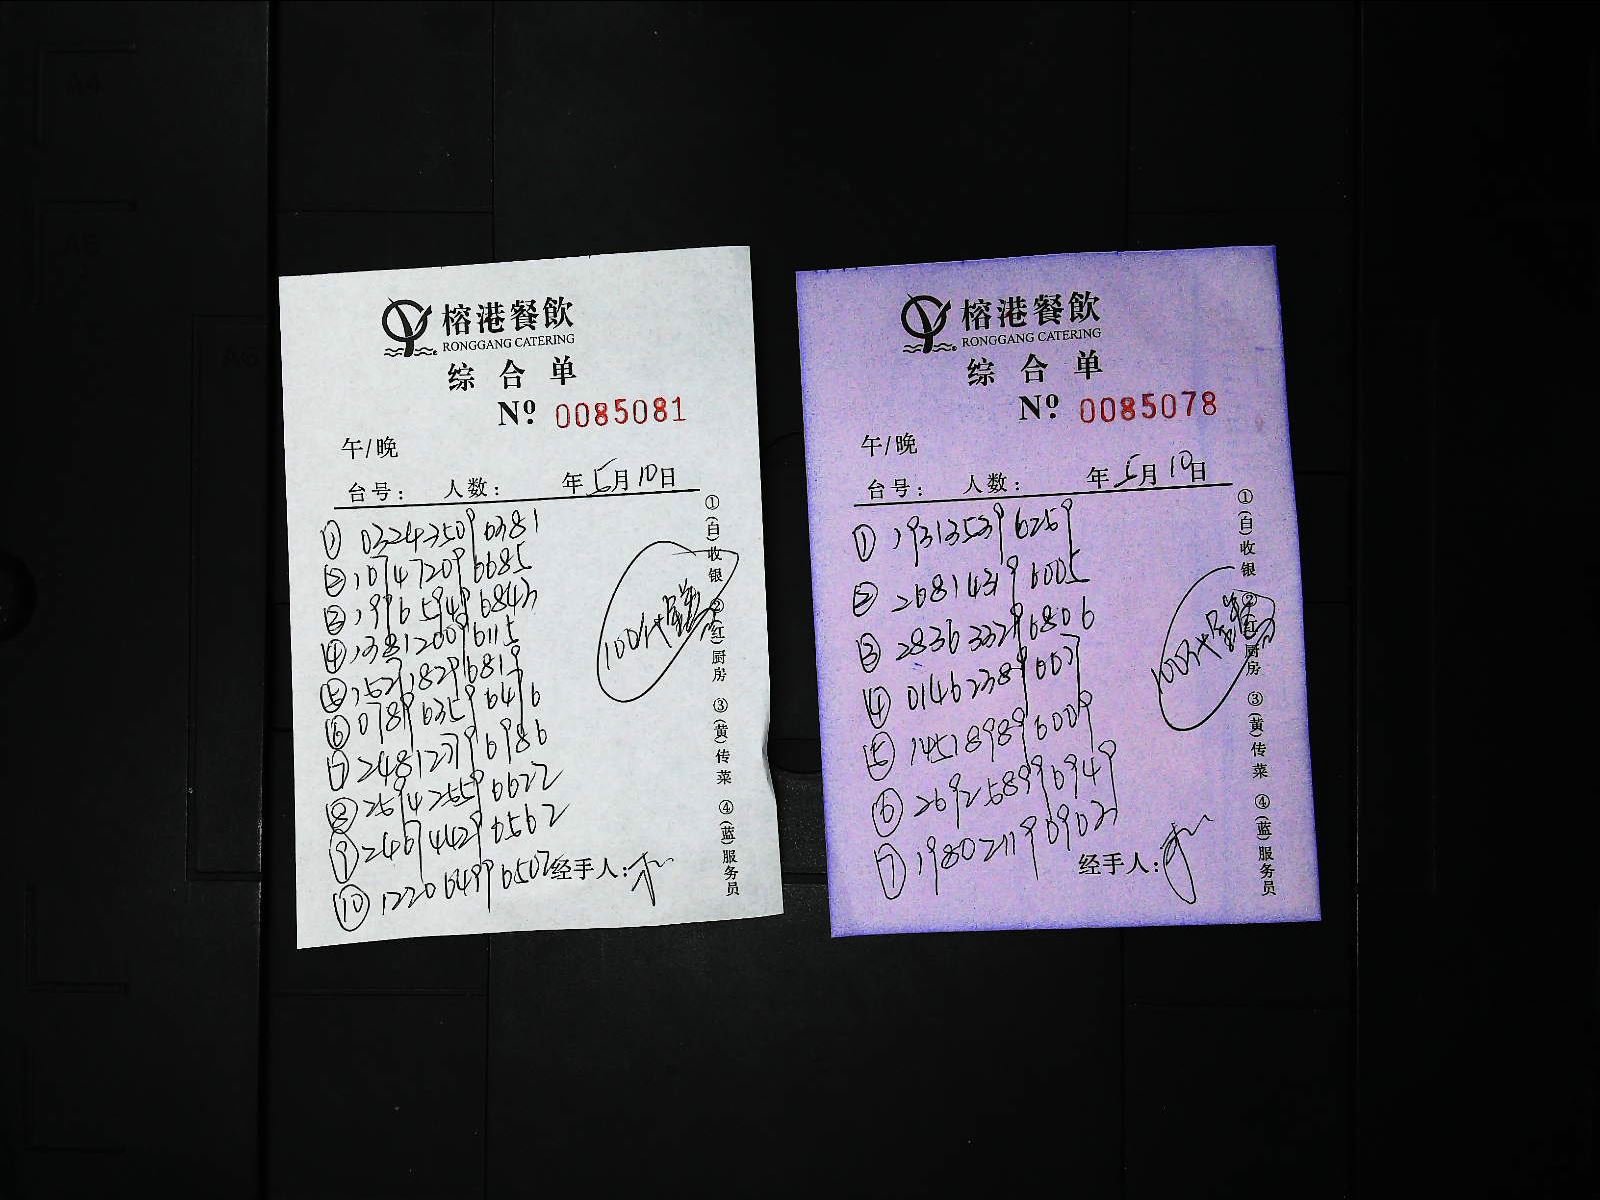 榕港餐飲
RONGGANG CATERING
综合单
Nº 0085081
午/晚
台号： 人数： 年5月10日
① 032435096381
② 107472096685
③ 199659496843
④ 1338120096115
⑤ 152718296819
⑥ 078963596496
⑦ 248123796986
⑧ 259425596622
⑨ 246944296562
⑩ 122064996507
经手人：
100代金券
①(白)收银 ②(红)厨房 ③(黄)传菜 ④(蓝)服务员
榕港餐飲
RONGGANG CATERING
综合单
Nº 0085078
午/晚
台号： 人数： 年5月10日
① 193135396259
② 268143196005
③ 283633296806
④ 014623896037
⑤ 145189896009
⑥ 269258996949
⑦ 198021196903
经手人：
100代金券
①(白)收银 ②(红)厨房 ③(黄)传菜 ④(蓝)服务员